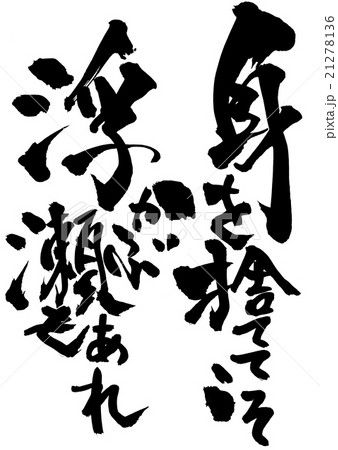 身を捨ててこそ
浮かぶ瀬もあれ
pixta.jp - 21278136